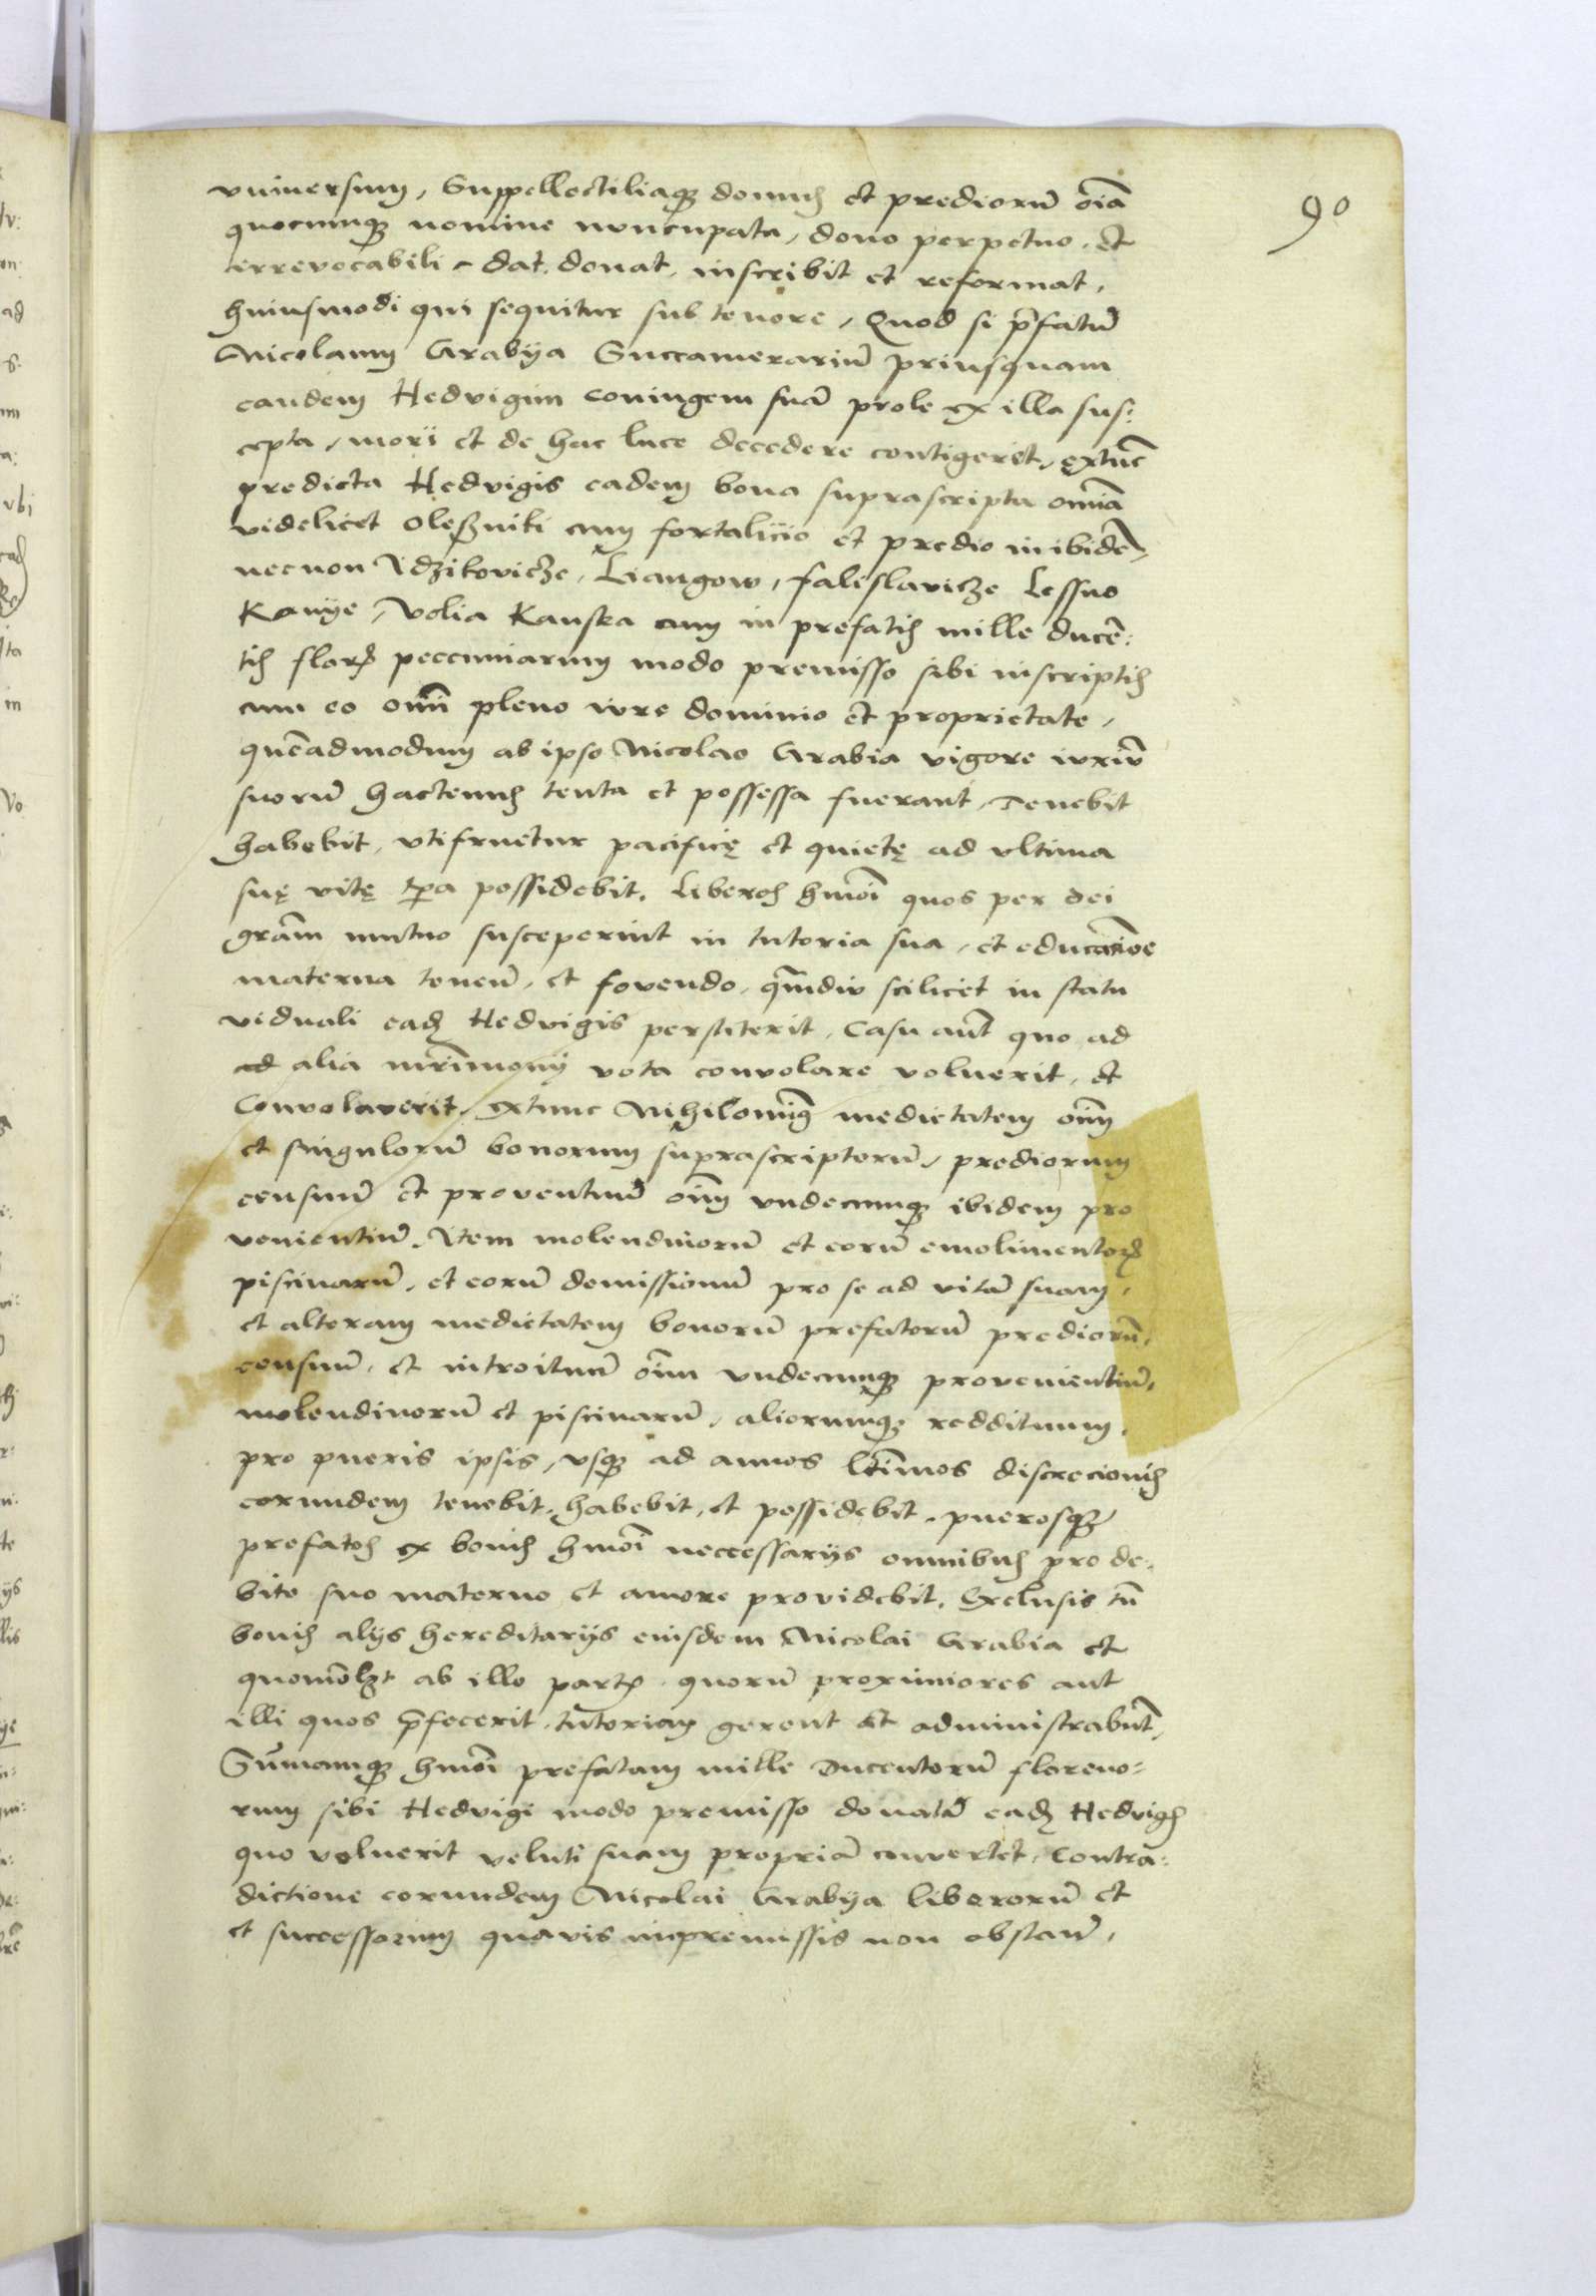 90
vniuersum, Suppellectiliaqꝫ domus et prediorũ oĩa
quocumqꝫ nomine nuncupata, dono perpetuo, et
irrevocabili dat, donat, inscribit et reformat,
huiusmodi qui sequitur sub tenore, Quod si p̃fatũ
Nicolaum Grabya Succamerariũ priusquam
eandem Hedvigim coniugem suã prole ex illa sus:
cepta, mori et de hac luce decedere contigeret, extũc
predicta Hedvigis eadem bona suprascripta omĩa
videlicet Oleßniki cum fortalicio et predio inibidẽ,
necnon Idzikovicze, Liangow, Faleslavicze Lessno
Kanye, Volia Kanska cum in prefatis mille ducẽ:
tis florꝝ peccuniarum modo premisso sibi inscriptis
cum eo omĩ pleno iure dominio et proprietate,
quẽadmodum ab ipso Nicolao Grabia vigore iuriũ
suorũ hactenus tenta et possessa fuerant, Tenebit
habebit, vtifruetur pacificę et quietę ad vltima
suę vitę tp̃a possidebit. Liberos hmõi quos per dei
gram̃ mutuo susceperint in tutoria sua, et educatiõe
materna teneñ, et fovendo, qm̃div scilicet in statu
viduali eadꝫ Hedvigis perstiterit, Casu aũt quo ad
ad alia mr̃imonij vota convolare voluerit, et
Convolaverit, extunc Nihilomiñ medietatem oĩm
et singulorũ bonorum suprascriptorũ, prediorum
censuũ et proventuũ oĩm vndecumqꝫ ibidem pro
venientiũ, Item molendinorũ et eorũ emolimentorꝝ
piscinarũ, et eorũ demissionũ pro se ad vitã suam,
et alteram medietatem bonorũ prefatorũ prediorũ,
censuũ, et introituũ oĩm vndecumqꝫ provenientiũ,
molendinorũ et piscinarũ, aliorumqꝫ reddituum,
pro pueris ipsis, vsqꝫ ad annos ltĩmos discrecionis
eorundem tenebit, habebit, et possidebit, puerosqꝫ
prefatos ex bonis hmõi neccessarijs omnibus pro de:
bito suo materno et amore providebit, Exclusis tñ
bonis alijs hereditarijs eiusdem Nicolai Grabia et
quomõlꝫt ab illo partꝭ quorũ proximiores aut
illi quos p̃fecerit, tutoriam gerent et administrabũt,
Sũmamqꝫ hmõi prefatam mille Ducentorũ floreno:
rum sibi Hedvigi modo premisso donatã eadꝫ Hedvigs
quo voluerit veluti suam propriã cunvertet, Contra:
dictione eorundem Nicolai Grabya liberorũ et
et successorum quavis inpremissis non obstañ,